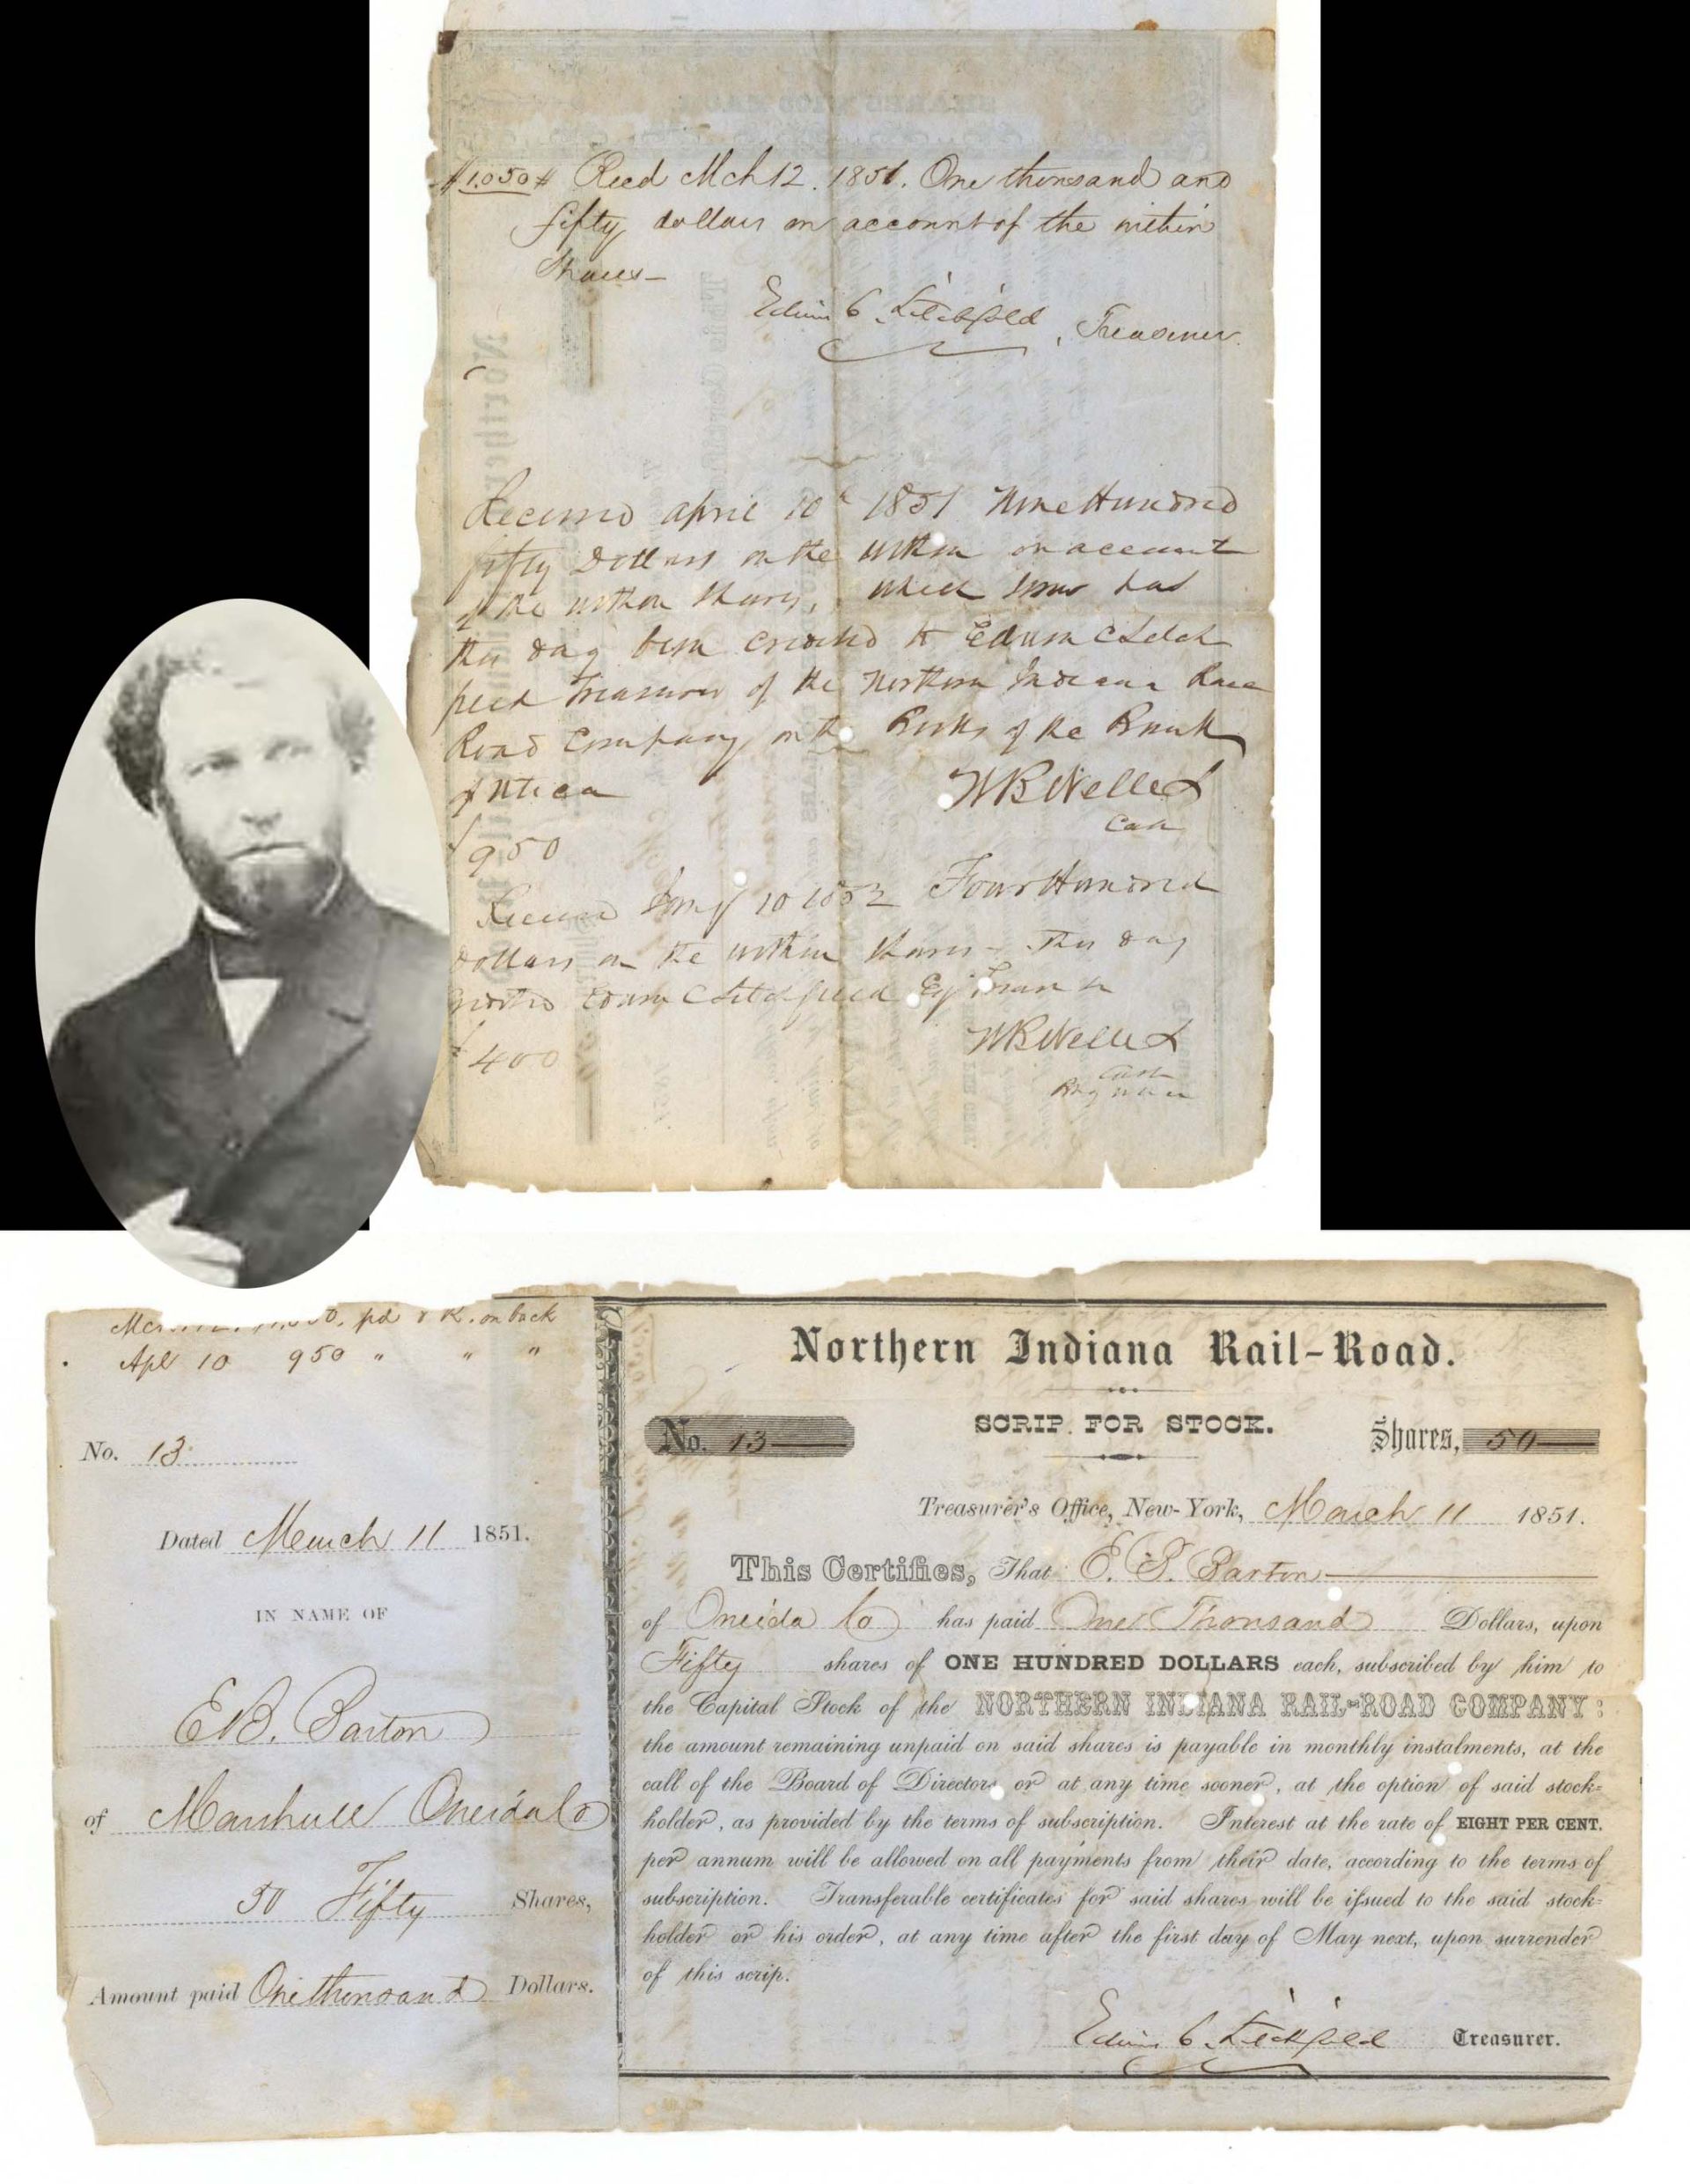 $1.050# Recd Mch 12. 1851. One thousand and
fifty dollars on account of the within
Shares—
Edwin C. Litchfield, Treasurer.
Received april 10th 1851 Nine Hundred
fifty Dollars on the within on account
of the within Shares, which sum has
this day been credited to Edwin C Litch
field Treasurer of the Northern Indiana Rail
Road Company on the Books of the Bank
of Utica
WB Welles
Cash
$950
Received Jany 10 1852 Four Hundred
Dollars on the within Shares - This day
Edwin C Litchfield Esq
WB Welles
$400
Cash
pd & R. on back
Apl 10 950 " " "
No. 13
Dated March 11 1851.
IN NAME OF
E B. Barton
of Marshall Oneida Co
50 Fifty Shares,
Amount paid One thousand Dollars.
Northern Indiana Rail-Road.
No. 13
SCRIP FOR STOCK.
Shares, 50
Treasurer's Office, New-York, March 11 1851.
This Certifies, That E. B. Barton
of Oneida Co has paid One Thousand Dollars, upon
Fifty shares of ONE HUNDRED DOLLARS each, subscribed by him to
the Capital Stock of the NORTHERN INDIANA RAIL-ROAD COMPANY:
the amount remaining unpaid on said shares is payable in monthly instalments, at the
call of the Board of Directors or at any time sooner, at the option of said stock-
holder, as provided by the terms of subscription. Interest at the rate of EIGHT PER CENT.
per annum will be allowed on all payments from their date, according to the terms of
subscription. Transferable certificates for said shares will be issued to the said stock-
holder or his order, at any time after the first day of May next, upon surrender
of this scrip.
Edwin C. Litchfield Treasurer.